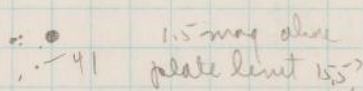 1.5 mag above
41 plate limit 15.5?